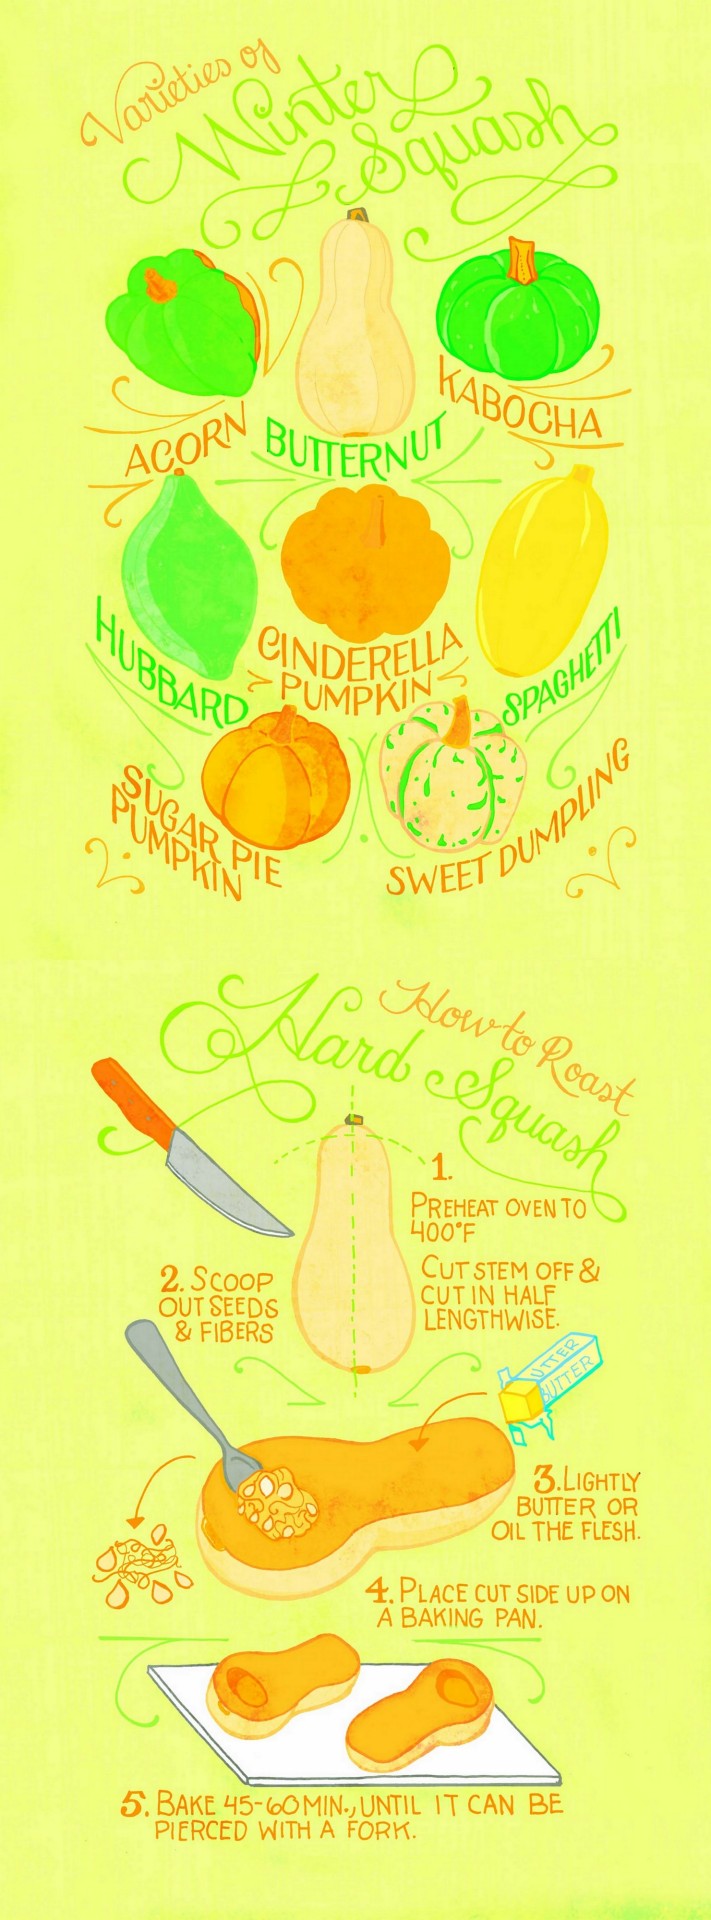 Varieties of
Winter
Squash
ACORN
BUTTERNUT
KABOCHA
HUBBARD
CINDERELLA
PUMPKIN
SPAGHETTI
SUGAR PIE
PUMPKIN
SWEET DUMPLING
How to Roast
Hard Squash
1.
PREHEAT OVEN TO
400°F
CUT STEM OFF &
CUT IN HALF
LENGTHWISE.
2. SCOOP
OUT SEEDS
& FIBERS
UTTER
BUTTER
3. LIGHTLY
BUTTER OR
OIL THE FLESH.
4. PLACE CUT SIDE UP ON
A BAKING PAN.
5. BAKE 45-60 MIN., UNTIL IT CAN BE
PIERCED WITH A FORK.